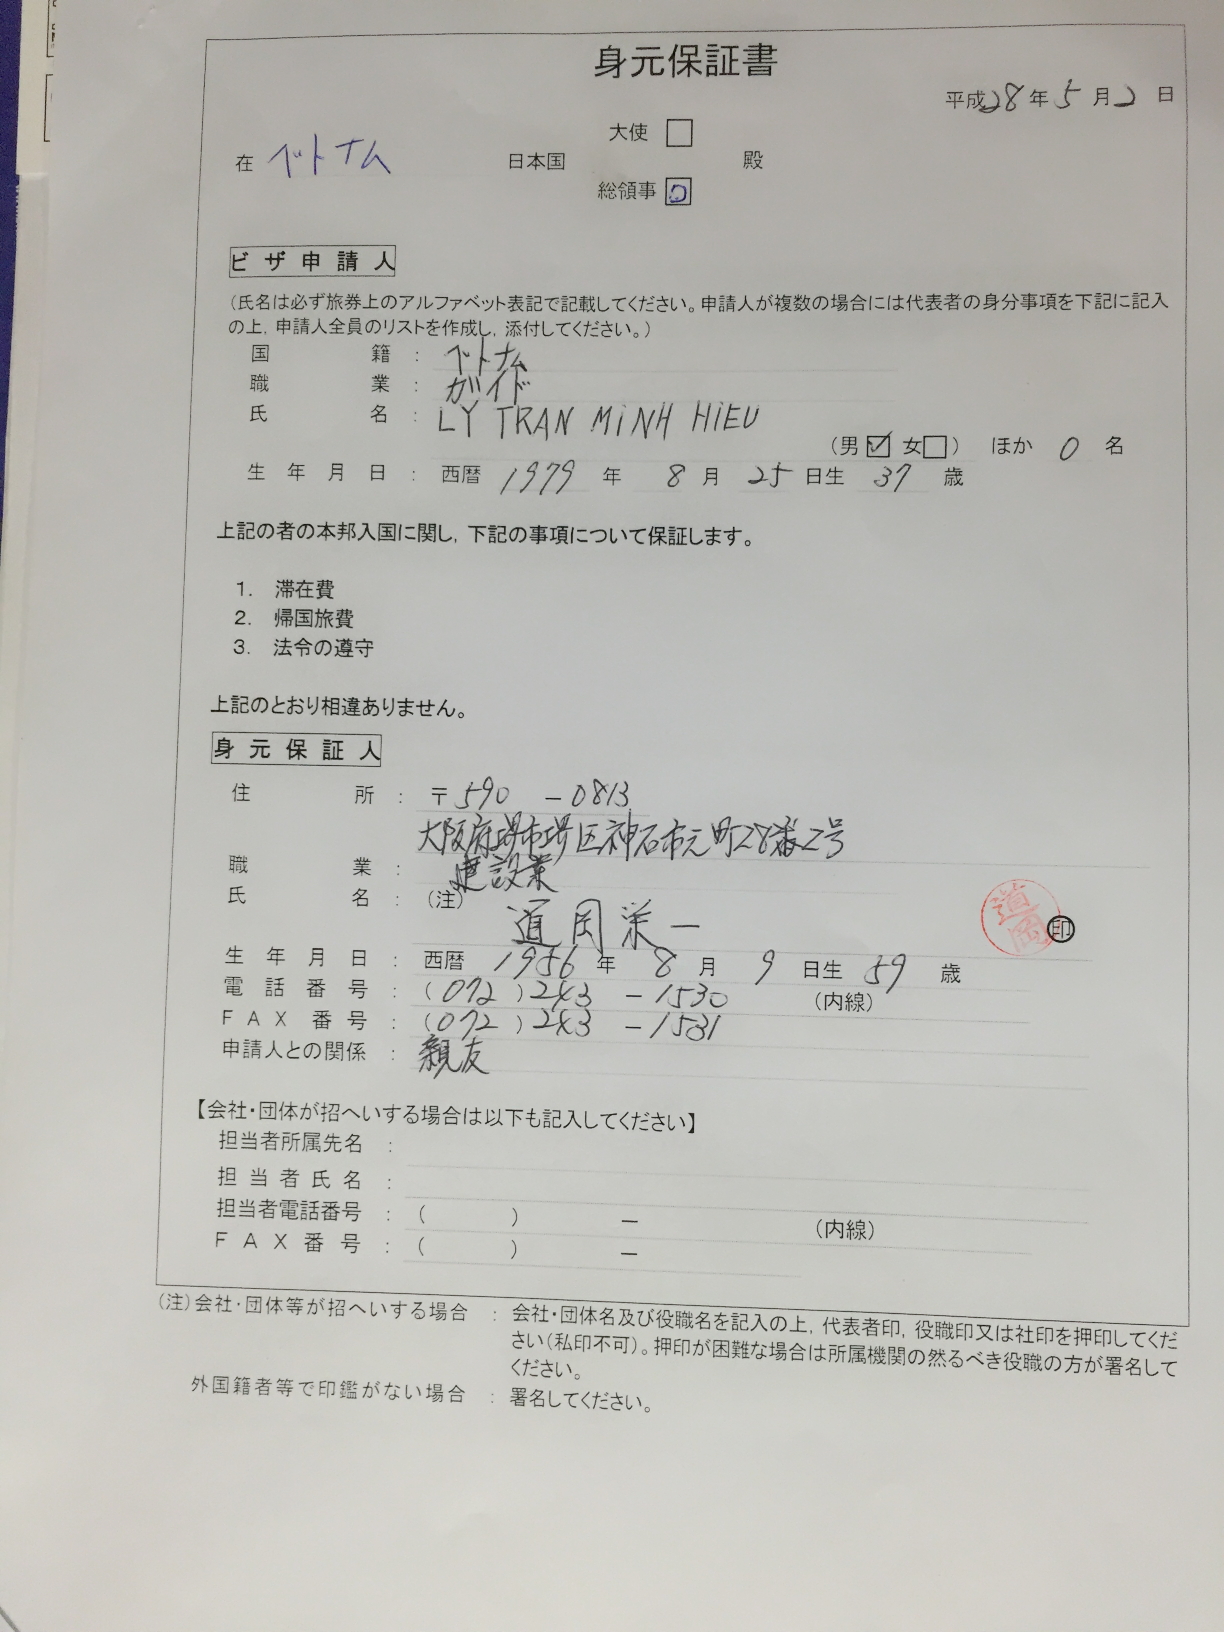 身元保証書
平成28年5月2日
大使 □
在 ベトナム 日本国 殿
総領事 □
ビザ申請人
（氏名は必ず旅券上のアルファベット表記で記載してください。申請人が複数の場合には代表者の身分事項を下記に記入
の上，申請人全員のリストを作成し，添付してください。）
国籍： ベトナム
職業： ガイド
氏名： LY TRAN MINH HIEU
（男☑ 女□） ほか 0 名
生年月日： 西暦 1979 年 8 月 25 日生 37 歳
上記の者の本邦入国に関し，下記の事項について保証します。
1. 滞在費
2. 帰国旅費
3. 法令の遵守
上記のとおり相違ありません。
身元保証人
住所： 〒590 －0813
大阪府堺市堺区神石市之町28番2号
職業： 建設業
氏名：（注） 道岡栄一 道岡 ㊞
生年月日： 西暦 1956 年 8 月 9 日生 59 歳
電話番号：（072）243 －1530 （内線）
FAX番号：（072）243 －1531
申請人との関係： 親友
【会社・団体が招へいする場合は以下も記入してください】
担当者所属先名：
担当者氏名：
担当者電話番号：（ ） － （内線）
FAX番号：（ ） －
（注）会社・団体等が招へいする場合 ： 会社・団体名及び役職名を記入の上，代表者印，役職印又は社印を押印してくだ
さい（私印不可）。押印が困難な場合は所属機関の然るべき役職の方が署名して
ください。
外国籍者等で印鑑がない場合 ： 署名してください。